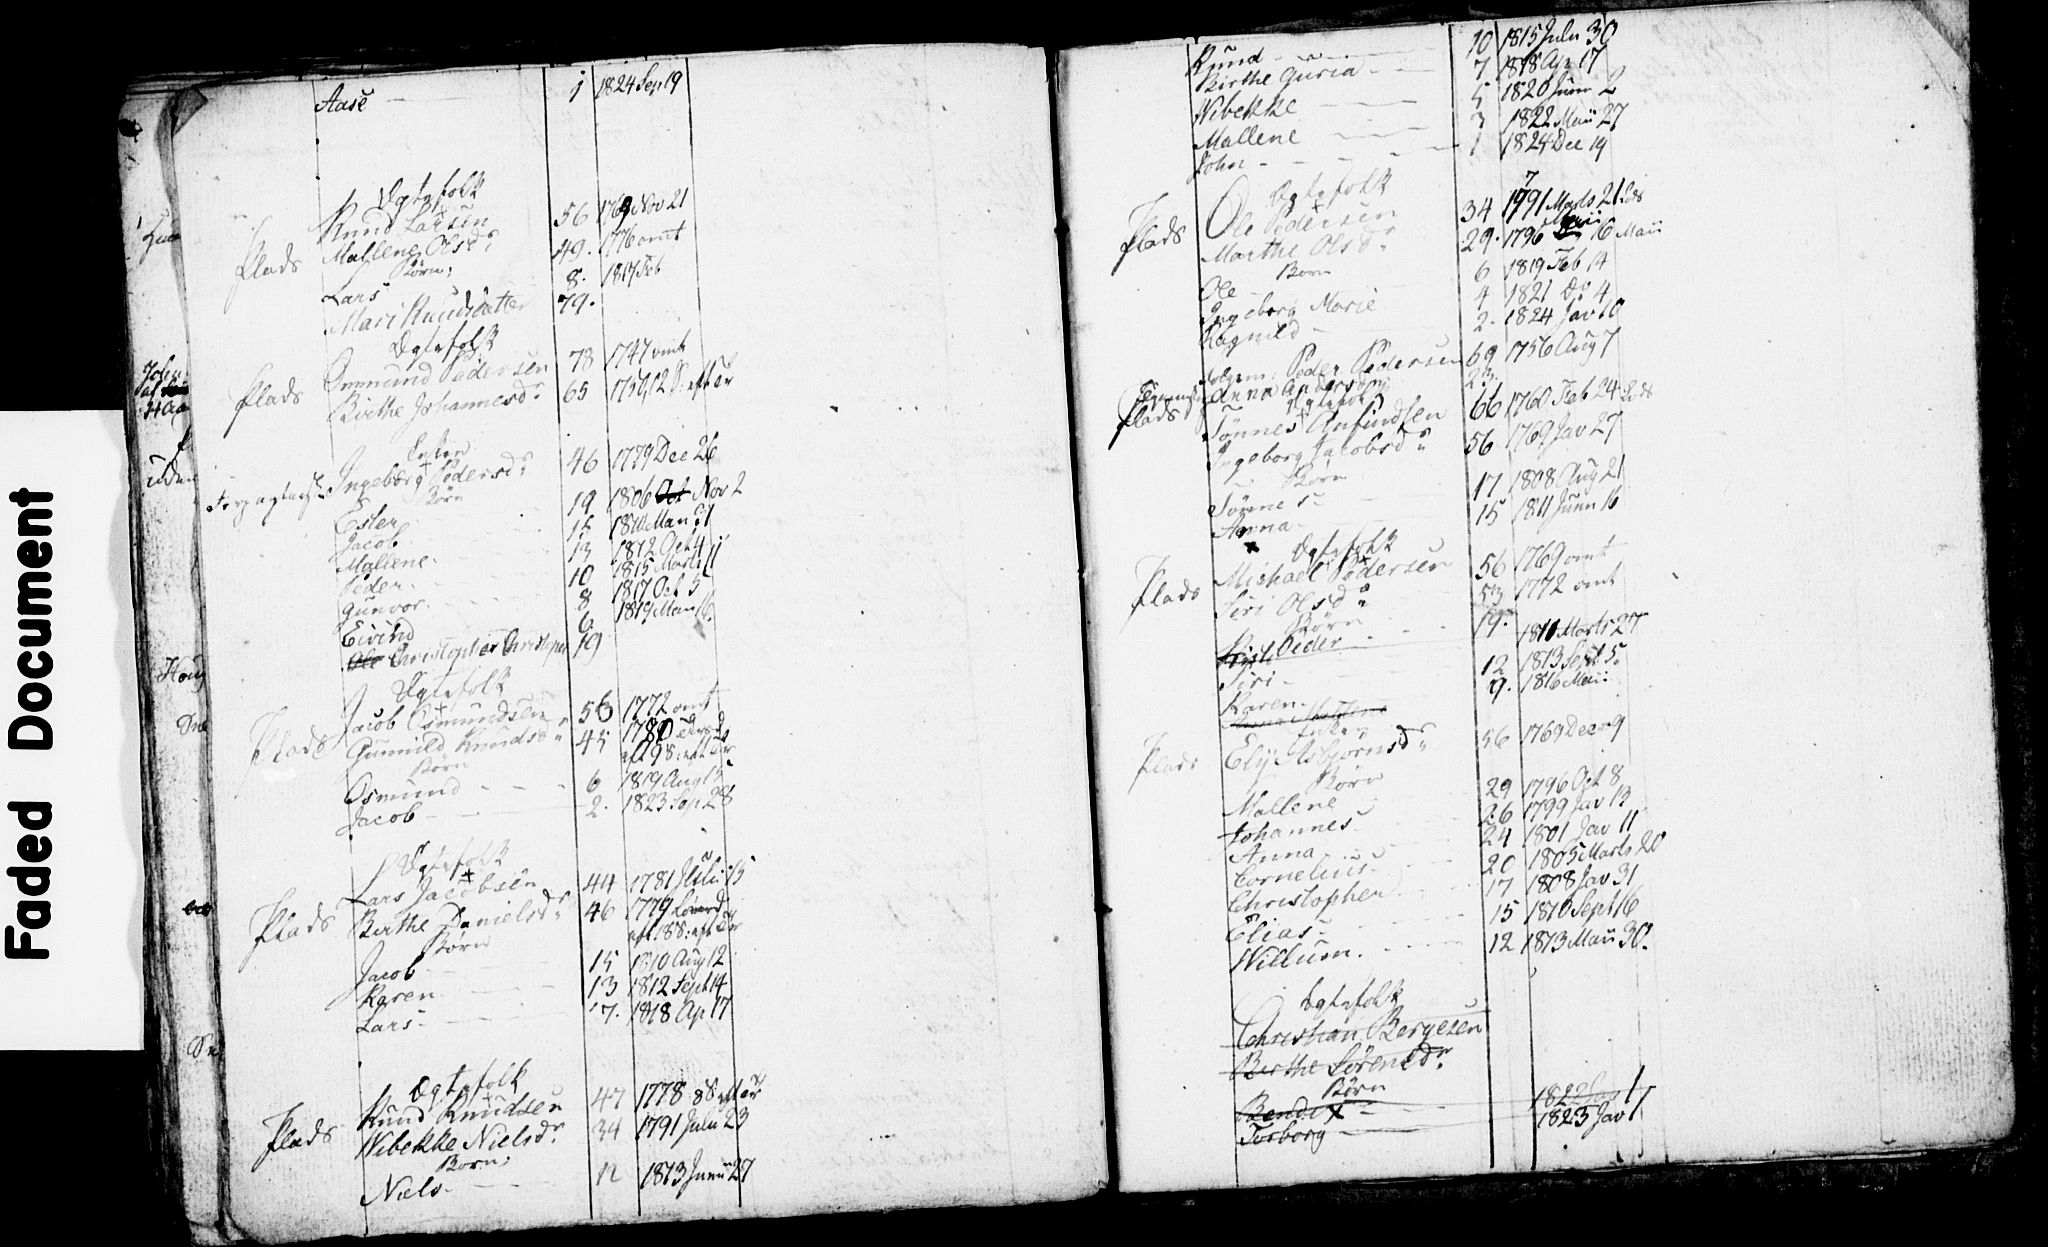 Faded Document
Aase 1 1824 Sep 19
Ægtefolk
Knud Larsen 56 1769 Nov 21
Plads Mallene Olsdr 49. 1776 omt
Børn:
Lars 8. 1817 Feb
Mari Knudsdatter 79.
Ægtefolk
Ommund Pedersen 78 1747 omt
Plads Birthe Johannesdr 65
Enken
Ingebærg Pedersdr 46 1779 Dec 26
Børn
Ester 19 1806 Oct Nov 2
Jacob 15 1810 Man
Mallene. 13 1812 Oct 4
Peder. 10 1815 Marts 11
Gunvor. 8 1817 Oct 5
Eivind 6 1819 Man 16.
Ole Christopher 19
Ægtefolk
Jacob Osmundsen 53 1772 omt
Plads Gunnild Knudsdr 45 1780
Børn
Osmund 6 1819 Aug
Jacob 2. 1823 Sep 28
Ægtefolk
Lars Jacobsen 44 1781 Julii 15
Plads Berthe Danielsdr 46 1779
Børn
Jacob 15 1810 Aug 12
Karen 13 1812 Sept 14
Lars 7. 1818 Ap 17
Ægtefolk
Knud Knudsen 47 1778
Plads Wibekke Nielsdr. 34 1791 Julii 23
Børn:
Niels 12 1813 Junii 27
Knud 10 1815 Julii 30
Birthe Guria 7 1818 Ap 17
Wibekke 5 1820 Junii 2
Mallene 3 1822 Maii 27
John 1 1824 Dec 19
Ægtefolk
Ole Pedersen 34 1791 Marts 21
Plads Marthe Olsdr 29. 1796 16 Maii
Børn
Ole 6 1819 Feb 14
Ingeborg Marie 4 1821 Do 4
Ragnild 2. 1824 Jav 10
Peder Pedersen 69 1756 Aug 7
Anna Andersdr 23.
Ægtefolk
Plads Tønnes Anfindsen 66 1760 Feb 24
Ingeborg Jacobsdr 56 1769 Jav 27
Børn
Tønnes 17 1808 Aug 21
Anna 15 1811 Junii 16
Ægtefolk
Michael Pedersen 56 1769 omt
Plads Siri Olsdr 53 1772 omt
Børn
Peder 19. 1811 Marts 27
Siri 12 1813 Sept 5.
Karen. 9. 1816 Maii
Enke
Plads Ely Asbjørnsdr 56 1769 Dec 9
Børn
Mallene 29 1796 Oct 8
Johannes 26 1799 Jav 13
Anna 24 1801 Jav 11
Cornelius 20 1805 Marts 20
Christopher 17 1808 Jav 31
Elias 15 1810 Sept 16
Willum. 12 1813 Maii 30.
Ægtefolk
Christian Bergesen
Berthe Sørensdr.
Børn
Bendix 1822 Jav 1
Torborg 1823 Jav 1